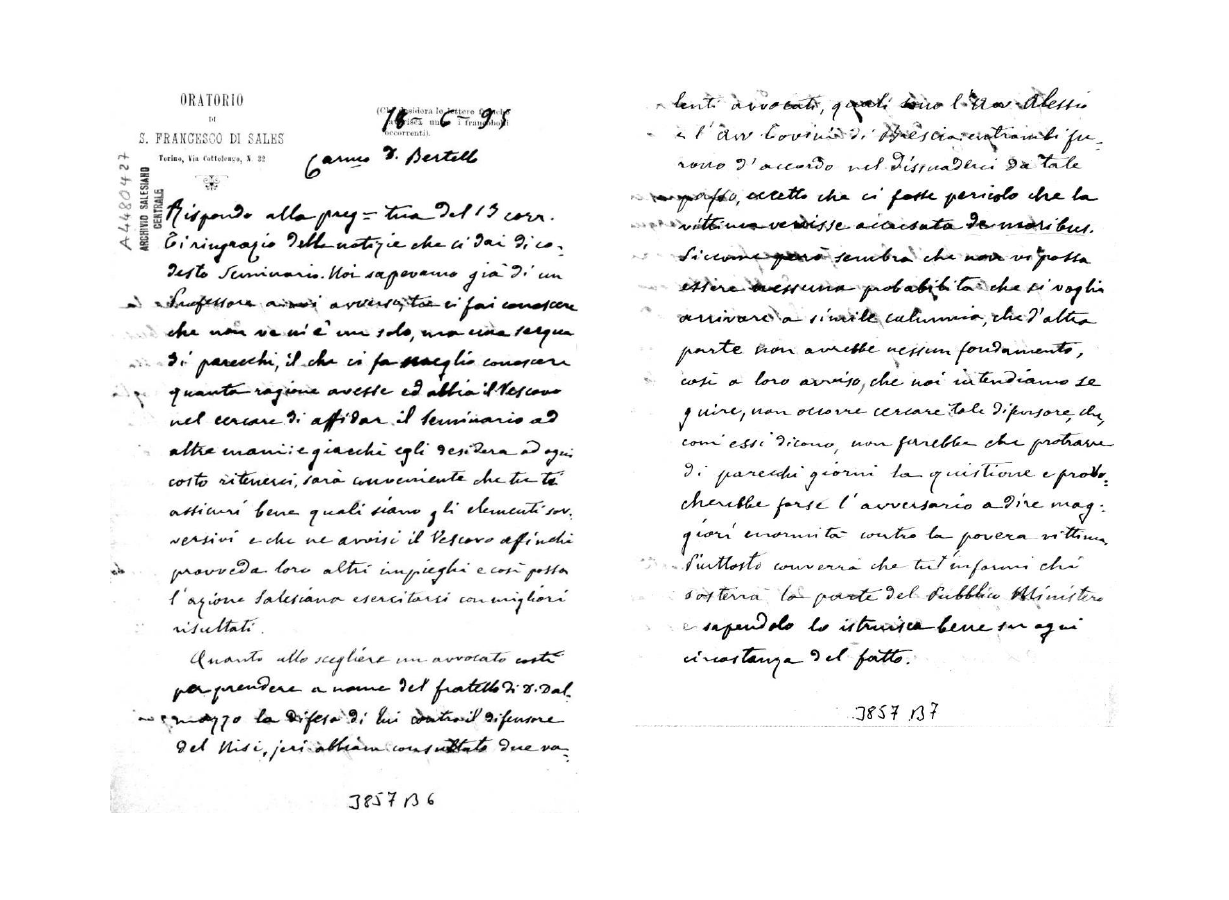 ORATORIO
DI
S. FRANCESCO DI SALES
Torino, Via Cottolengo, N. 32
(Chi desidera le lettere
unisca i francobolli
occorrenti).
18-6-95
A4480427
ARCHIVIO SALESIANO
CENTRALE
Carmo D. Bertello
Rispondo alla preg= tua del 15 corr.
Ti ringrazio delle notizie che ci dai di co-
desto Seminario. Noi sapevamo già di un
Professore a noi avverso, tu ci fai conoscere
che non ve n'è un solo, ma una serqua
di parecchi, il che ci fa meglio conoscere
quanta ragione avesse ed abbia il Vescovo
nel cercare di affidar il Seminario ad
altre mani: e giacchè egli desidera ad ogni
costo ritenerci, sarà conveniente che tu te
assicuri bene quali siano gli elementi sov-
versivi e che ne avvisi il Vescovo affinchè
provveda loro altri impieghi e così possa
l'azione Salesiana esercitarsi con migliori
risultati.
Quanto allo scegliere un avvocato costì
per prendere a nome del fratello di D. Dal-
mazzo la difesa di lui contro il difensore
del Nisi, jeri abbiam consultato due va-
3857 B 6
lenti avvocati, quali sono l'Avv Alessio
e l'Avv di Brescia, entrambi fu-
rono d'accordo nel dissuaderci da tale
passo, eccetto che ci fosse pericolo che la
vittima venisse accusata de moribus.
Siccome però sembra che non vi possa
essere nessuna probabilità che si voglia
arrivare a simile calunnia, che d'altra
parte non avrebbe nessun fondamento,
così a loro avviso, che noi intendiamo se
guire, non occorre cercare tale difensore, che,
com'essi dicono, non farebbe che protrarre
di parecchi giorni la quistione e provo-
cherebbe forse l'avversario a dire mag-
giori enormità contro la povera vittima.
Piuttosto converrà che tu t'informi chi
sosterrà la parte del Pubblico Ministero
e sapendolo lo istruisca bene su ogni
circostanza del fatto.
3857 B7